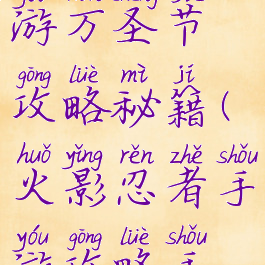 游万圣节
gōng lüè mì jí
攻略秘籍(
huǒ yǐng rěn zhě shǒu
火影忍者手
yóu gōng lüè shǒu
游攻略手